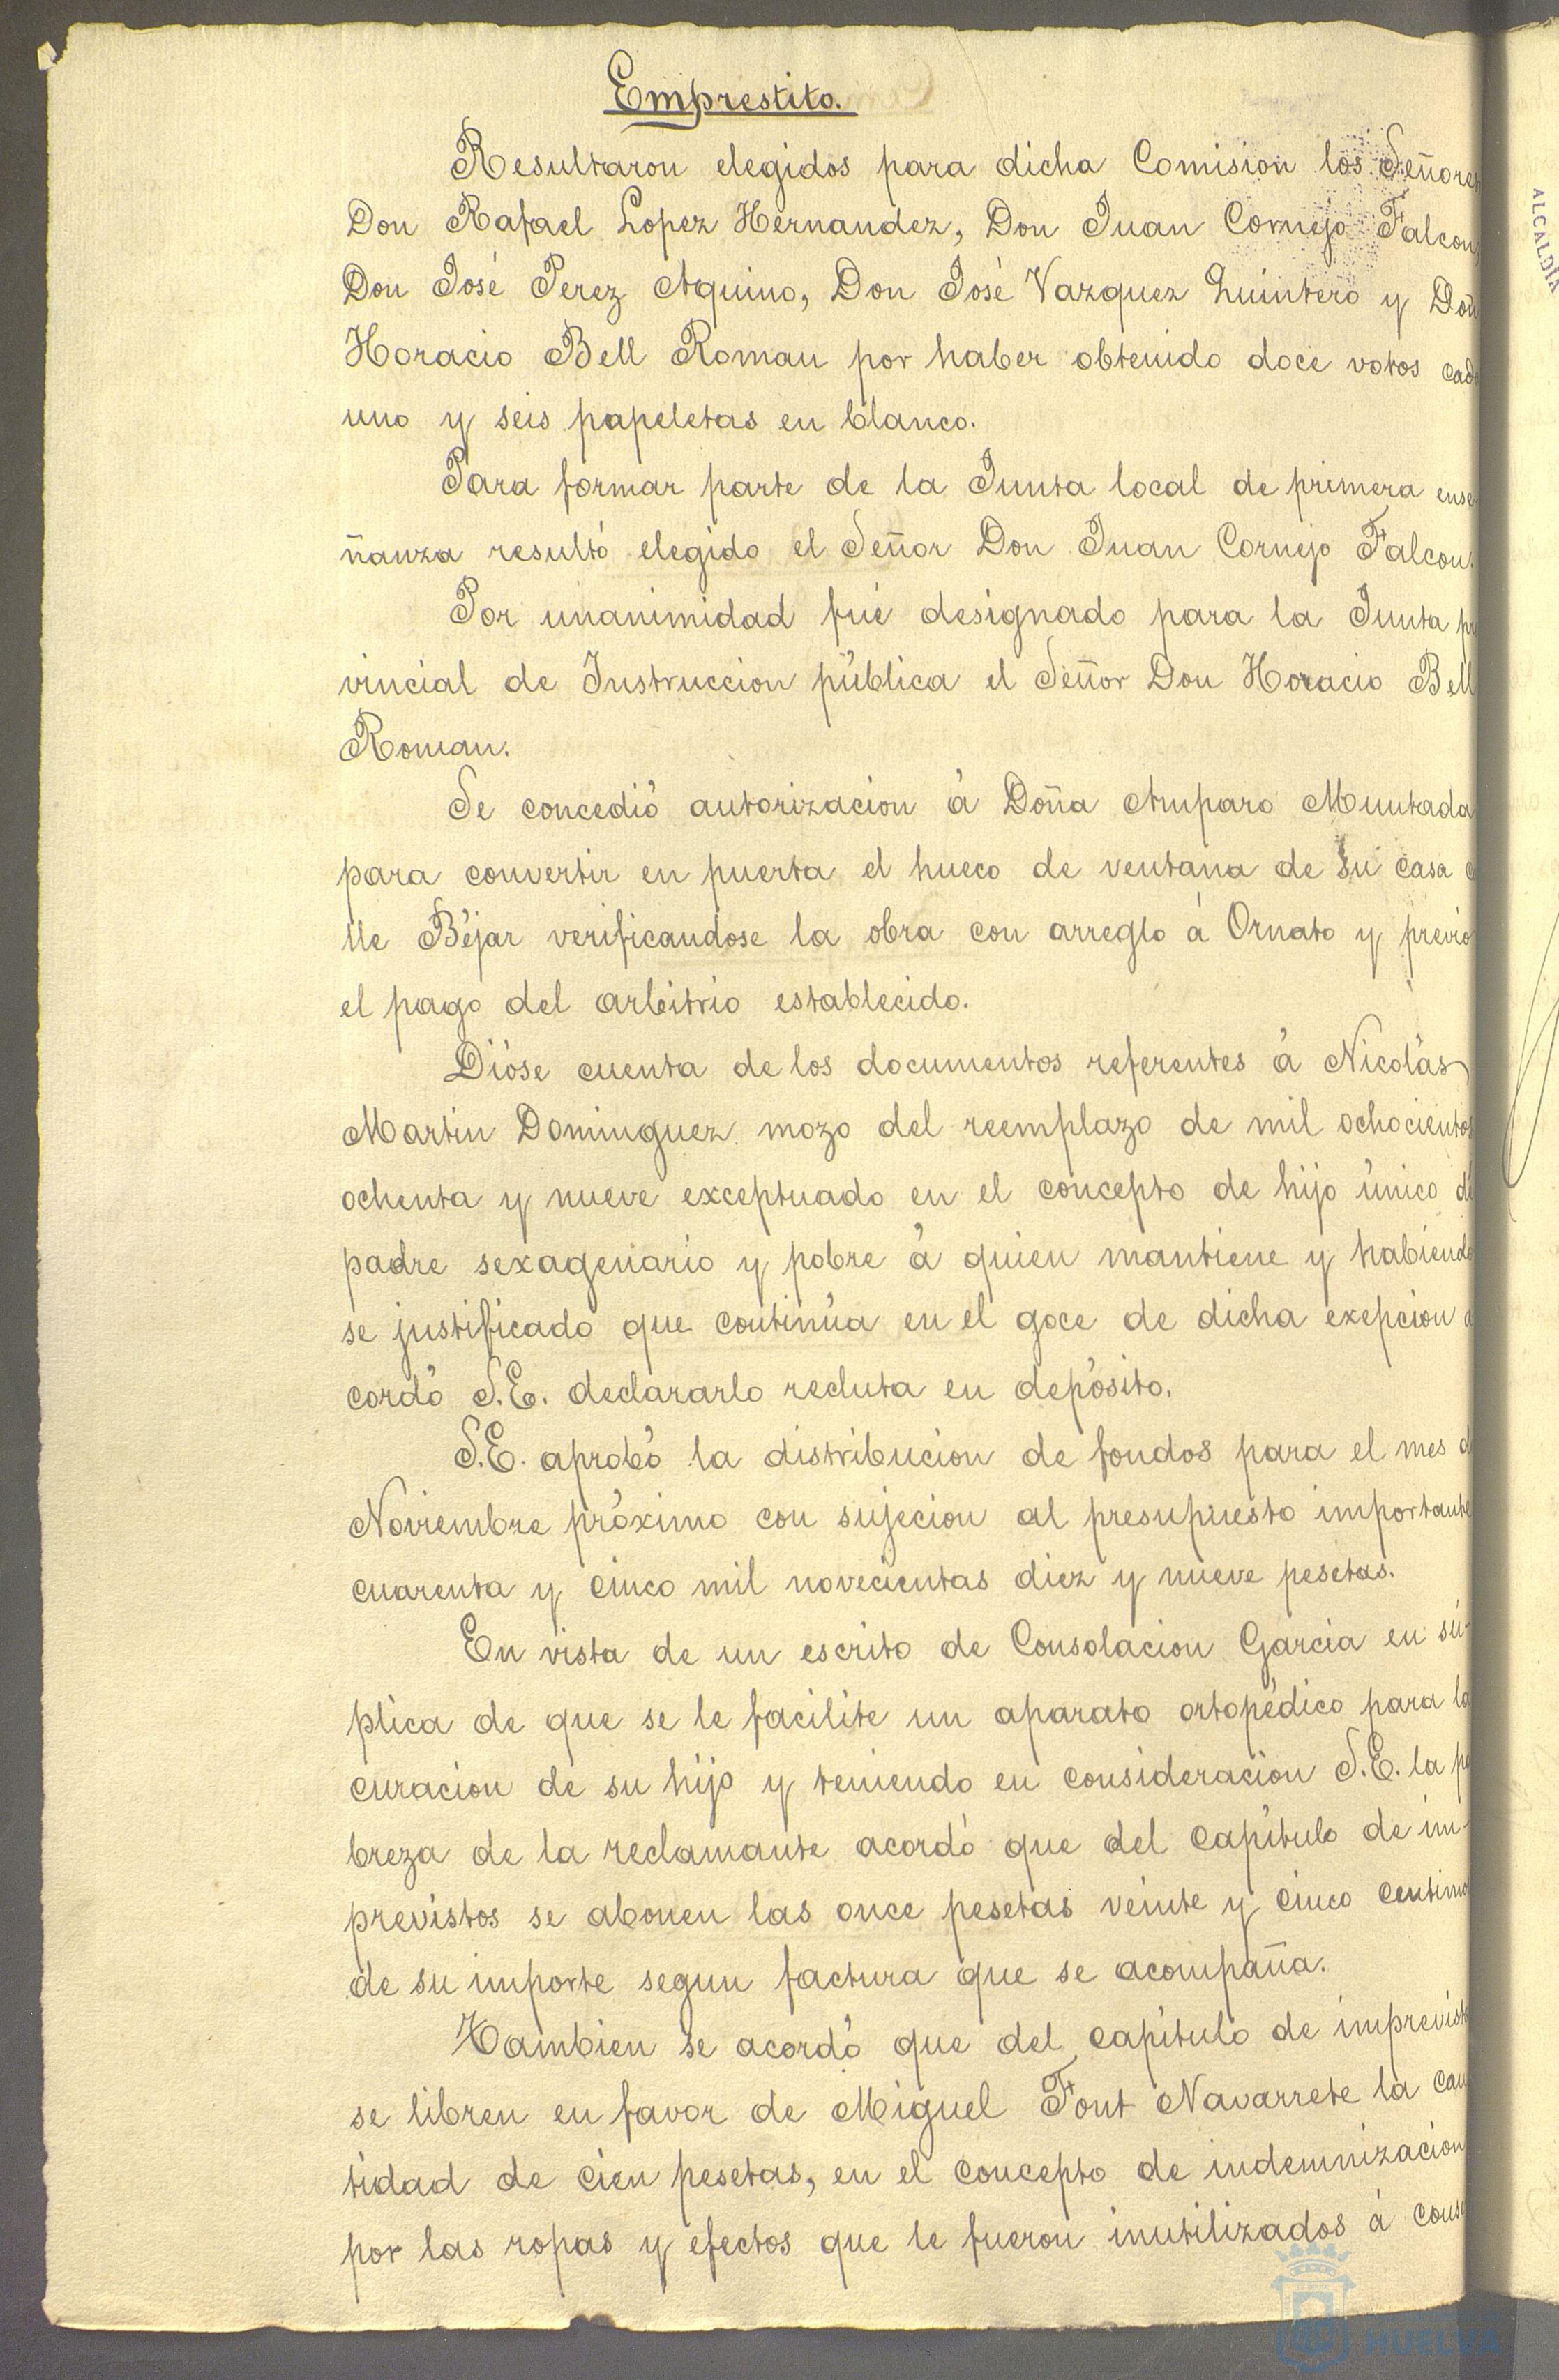 Emprestito.
Resultaron elegidos para dicha Comision los Señores
Don Rafael Lopez Hernandez, Don Juan Cornejo Falcon,
Don José Perez Aquino, Don José Vazquez Quintero y Don
Horacio Bell Roman por haber obtenido doce votos cada
uno y seis papeletas en blanco.
Para formar parte de la Junta local de primera ense
ñanza resultó elegido el Señor Don Juan Cornejo Falcon.
Por unanimidad fué designado para la Junta pr
vincial de Instruccion pública el Señor Don Horacio Bell
Roman.
Se concedió autorizacion á Doña Amparo Muntada
para convertir en puerta el hueco de ventana de su casa c
lle Béjar verificandose la obra con arreglo á Ornato y previo
el pago del arbitrio establecido.
Dióse cuenta de los documentos referentes á Nicolás
Martin Dominguez mozo del reemplazo de mil ochocientos
ochenta y nueve exceptuado en el concepto de hijo único de
padre sexagenario y pobre á quien mantiene y habiendo
se justificado que continúa en el goce de dicha exepcion a
cordó S.E. declararlo recluta en depósito.
S.E. aprobó la distribucion de fondos para el mes de
Noviembre próximo con sujecion al presupuesto importante
cuarenta y cinco mil novecientas diez y nueve pesetas.
En vista de un escrito de Consolacion Garcia en sú-
plica de que se le facilite un aparato ortopédico para la
curacion de su hijo y teniendo en consideracion S.E. la po
breza de la reclamante acordó que del capítulo de im-
previstos se abonen las once pesetas veinte y cinco centimo
de su importe segun factura que se acompaña.
Tambien se acordó que del capítulo de imprevist
se libren en favor de Miguel Font Navarrete la can
tidad de cien pesetas, en el concepto de indemnizacion
por las ropas y efectos que le fueron inutilizados á cons
ALCALDÍA
HUELVA